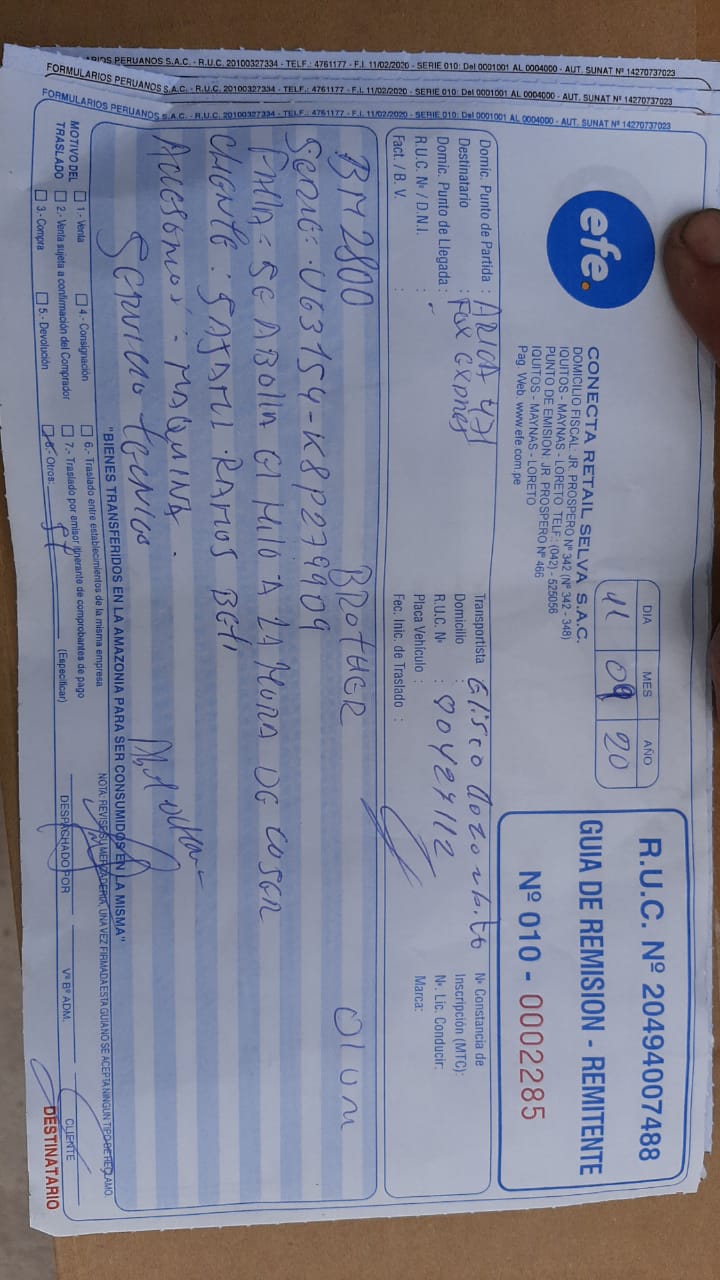 ARIOS PERUANOS S.A.C. - R.U.C. 20100327334 - TELF.: 4761177 - F.I. 11/02/2020 - SERIE 010: Del 0001001 AL 0004000 - AUT. SUNAT Nº 14270737023
FORMULARIOS PERUANOS S.A.C. - R.U.C. 20100327334 - TELF.: 4761177 - F.I. 11/02/2020 - SERIE 010: Del 0001001 AL 0004000 - AUT. SUNAT Nº 14270737023
FORMULARIOS PERUANOS S.A.C. - R.U.C. 20100327334 - TELF.: 4761177 - F.I. 11/02/2020 - SERIE 010: Del 0001001 AL 0004000 - AUT. SUNAT Nº 14270737023
efe.
CONECTA RETAIL SELVA S.A.C.
DOMICILIO FISCAL: JR. PROSPERO Nº 342 (Nº 342 - 348)
IQUITOS - MAYNAS - LORETO TELF.: (042) - 525056
PUNTO DE EMISION: JR. PROSPERO Nº 466
IQUITOS - MAYNAS - LORETO
Pag. Web. www.efe.com.pe
DIA MES AÑO
11 09 20
R.U.C. Nº 20494007488
GUIA DE REMISION - REMITENTE
Nº 010 - 0002285
Domic. Punto de Partida : ARICA 471
Destinatario :
Domic. Punto de Llegada :
R.U.C. Nº / D.N.I. :
Fact. / B. V. :
Transportista
Domicilio :
R.U.C. Nº : 90427112
Placa Vehículo :
Fec. Inic. de Traslado :
Nº Constancia de
Inscripción (MTC):
Nº. Lic. Conducir:
Marca:
BM2800 BROTHER 01 UNI
SERIE: U63154-K8P279909
FALLA: SE ABOLLA EL HILO A LA HORA DE COSER
CLIENTE: SAJAMI RAMOS BETI
ACCESORIOS: MAQUINA.
SERVICIO TECNICO
"BIENES TRANSFERIDOS EN LA AMAZONIA PARA SER CONSUMIDOS EN LA MISMA"
MOTIVO DEL
TRASLADO
1.- Venta
2.- Venta sujeta a confirmación del Comprador
3.- Compra
4.- Consignación
5.- Devolución
6.- Traslado entre establecimientos de la misma empresa
7.- Traslado por emisor itinerante de comprobantes de pago
8.- Otros: ST
(Especificar)
NOTA: REVISE SU MERCADERIA, UNA VEZ FIRMADA ESTA GUIA NO SE ACEPTA NINGUN TIPO DE RECLAMO.
DESPACHADO POR
Vº Bº ADM.
CLIENTE
DESTINATARIO